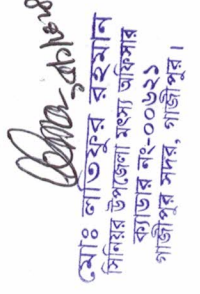 মোঃ লতিফুর রহমান
সিনিয়র উপজেলা মৎস্য অফিসার
ক্যাডার নং-০০৬২১
গাজীপুর সদর, গাজীপুর।